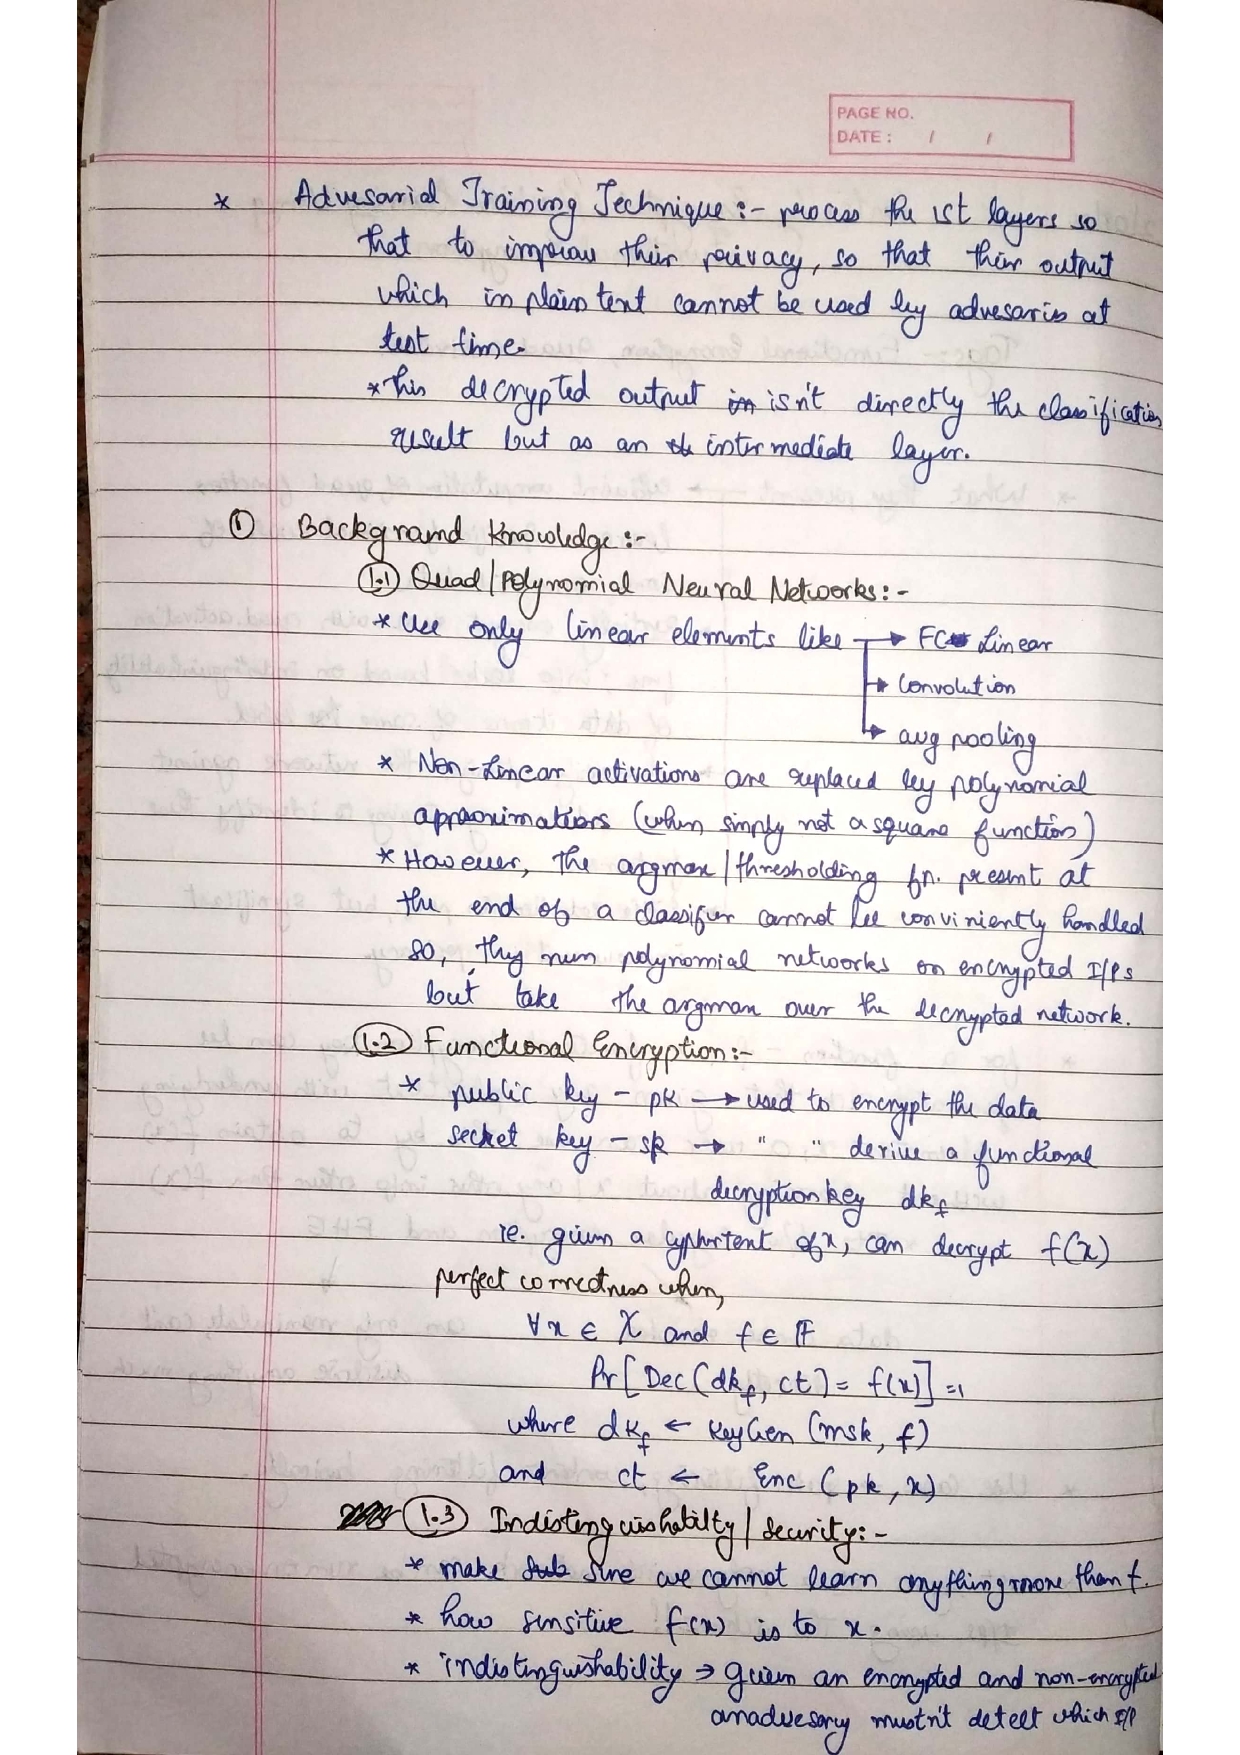 PAGE NO.
DATE : / /
* Advesarial Training Technique :- process the 1st layers so
that to improve their privacy, so that their output
which in plain text cannot be used by advesaries at
test time.
* this decrypted output isn't directly the classification
result but as an intermediate layer.
① Background Knowledge :-
1.1 Quad/Polynomial Neural Networks :-
* Use only linear elements like → FC Linear
→ Convolution
→ avg pooling
* Non-Linear activations are replaced by polynomial
approximations (when simply not a square function)
* However, the argmax / thresholding fn. present at
the end of a classifier cannot be conviniently handled
so, they run polynomial networks on encrypted I/Ps
but take the argmax over the decrypted network.
1.2 Functional Encryption :-
* public key - pk → used to encrypt the data
secret key - sk → " " derive a functional
decryption key dkf
ie. given a cyphertext of x, can decrypt f(x)
perfect correctness when,
∀x ∈ X and f ∈ F
Pr[Dec(dkf, ct) = f(x)] = 1
where dkf ← KeyGen (msk, f)
and ct ← Enc (pk, x)
1.3 Indistinguishabilty / security :-
* make sure we cannot learn anything more than f.
* how sensitive f(x) is to x.
* indistinguishability → given an encrypted and non-encrypted
an advesory mustn't detect which I/P